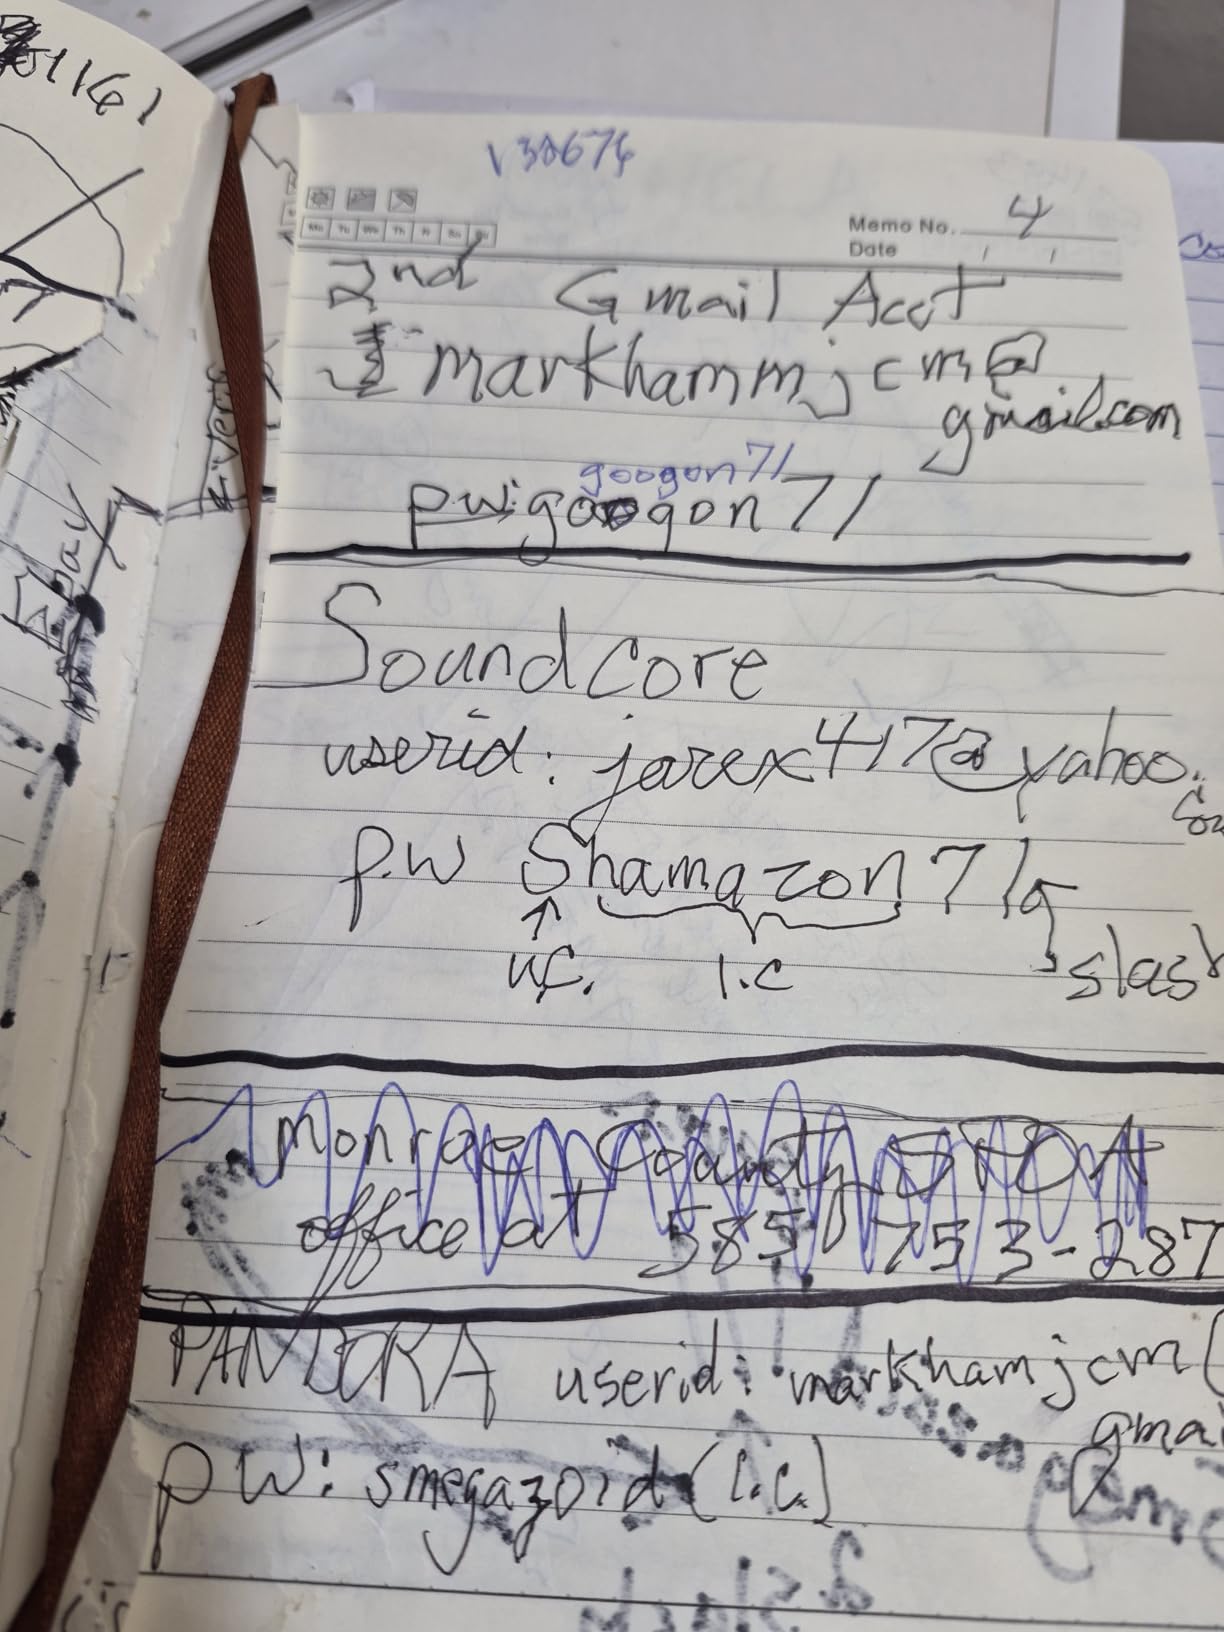 V38676
Memo No. 4
Mo Tu We Th Fr Sa Su
Date / /
2nd Gmail Acct
markhammjcm@
gmail.com
googon71
pw: googon71
Soundcore
userid: jarex417@yahoo.
pw Shamazon71
u.c. l.c slash
Monroe County
office at 585 753-287
PANDORA userid: markhamjcm
gmai
pw: smegazoid (l.c.)